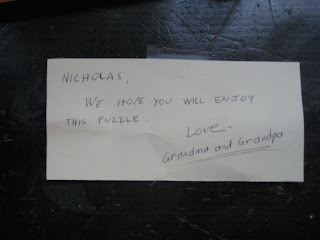 NICHOLAS,
WE HOPE YOU WILL ENJOY
THIS PUZZLE.
LOVE.
Grandma and Grandpa